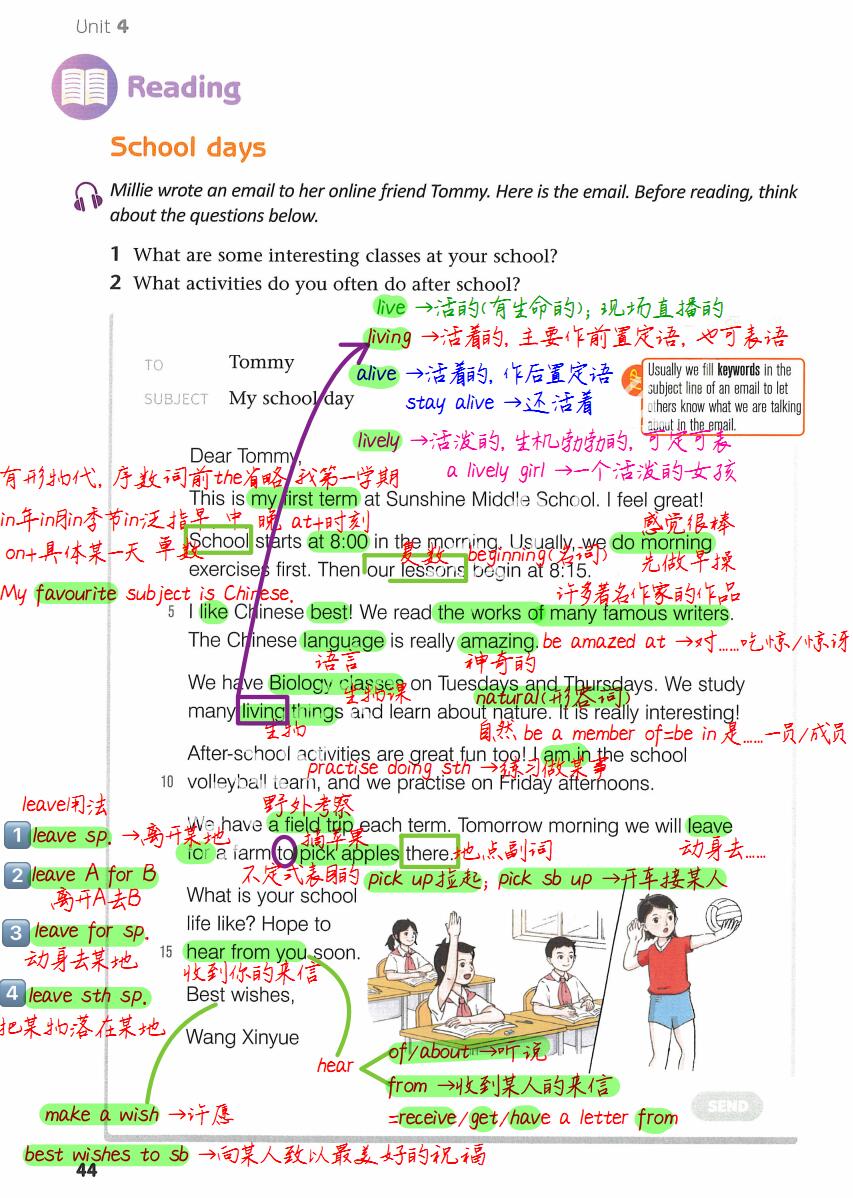 Unit 4
Reading
School days
Millie wrote an email to her online friend Tommy. Here is the email. Before reading, think
about the questions below.
1 What are some interesting classes at your school?
2 What activities do you often do after school?
live →活的(有生命的); 现场直播的
living →活着的, 主要作前置定语, 也可表语
TO Tommy
alive →活着的, 作后置定语
Usually we fill keywords in the
subject line of an email to let
others know what we are talking
about in the email.
SUBJECT My school day
stay alive →还活着
lively →活泼的, 生机勃勃的, 可定可表
Dear Tommy,
a lively girl →一个活泼的女孩
有形物代, 序数词前the省略 我第一学期
This is my first term at Sunshine Middle School. I feel great!
in年in月in季节in泛指早 中 晚 at+时刻
感觉很棒
School starts at 8:00 in the morning. Usually, we do morning
on+具体某一天 单数
复数 beginning(名词)
先做早操
exercises first. Then our lessons begin at 8:15.
My favourite subject is Chinese.
许多著名作家的作品
5 I like Chinese best! We read the works of many famous writers.
The Chinese language is really amazing.
be amazed at →对……吃惊/惊讶
语言
神奇的
We have Biology classes on Tuesdays and Thursdays. We study
生物课
natural(形容词)
many living things and learn about nature. It is really interesting!
生物
自然 be a member of=be in 是……一员/成员
After-school activities are great fun too! I am in the school
practise doing sth →练习做某事
10 volleyball team, and we practise on Friday afternoons.
leave用法
野外考察
We have a field trip each term. Tomorrow morning we will leave
1 leave sp. →离开某地
摘苹果
for a farm to pick apples there.
地点副词
动身去……
2 leave A for B
离开A去B
不定式表目的 pick up捡起; pick sb up →开车接某人
What is your school
life like? Hope to
3 leave for sp.
动身去某地
15 hear from you soon.
收到你的来信
4 leave sth sp.
把某物落在某地
Best wishes,
Wang Xinyue
hear
of/about →听说
from →收到某人的来信
=receive/get/have a letter from
SEND
make a wish →许愿
best wishes to sb →向某人致以最美好的祝福
44